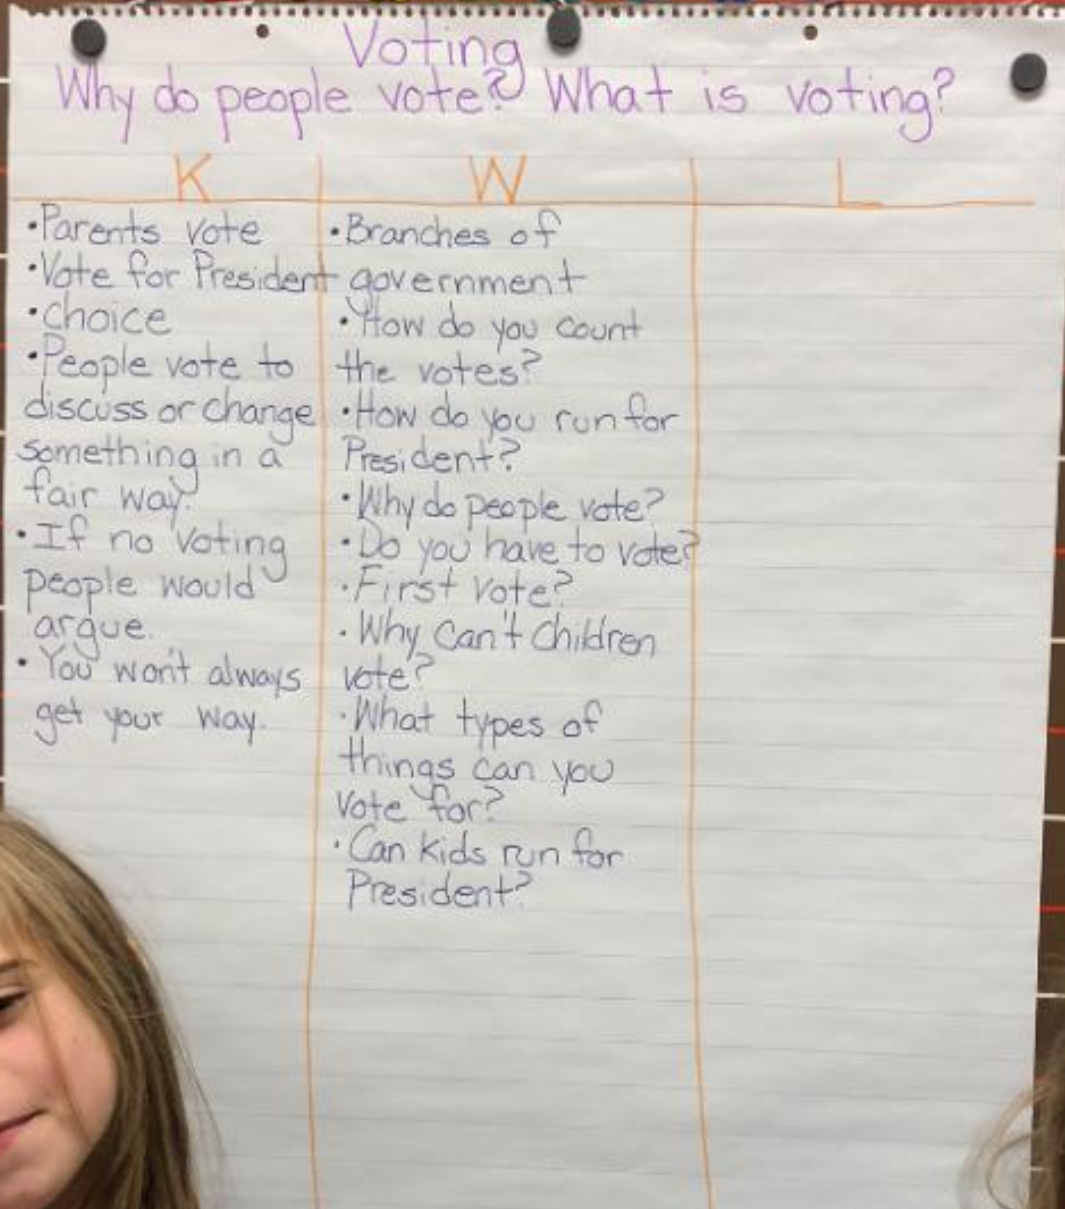 Voting
Why do people vote? What is voting?
K
W
L
•Parents vote
•Vote for President
•choice
•People vote to
discuss or change
something in a
fair way.
•If no voting
people would
argue.
•You won't always
get your way.
•Branches of
government
•How do you count
the votes?
•How do you run for
President?
•Why do people vote?
•Do you have to vote?
•First vote?
•Why can't children
vote?
•What types of
things can you
vote for?
•Can kids run for
President?